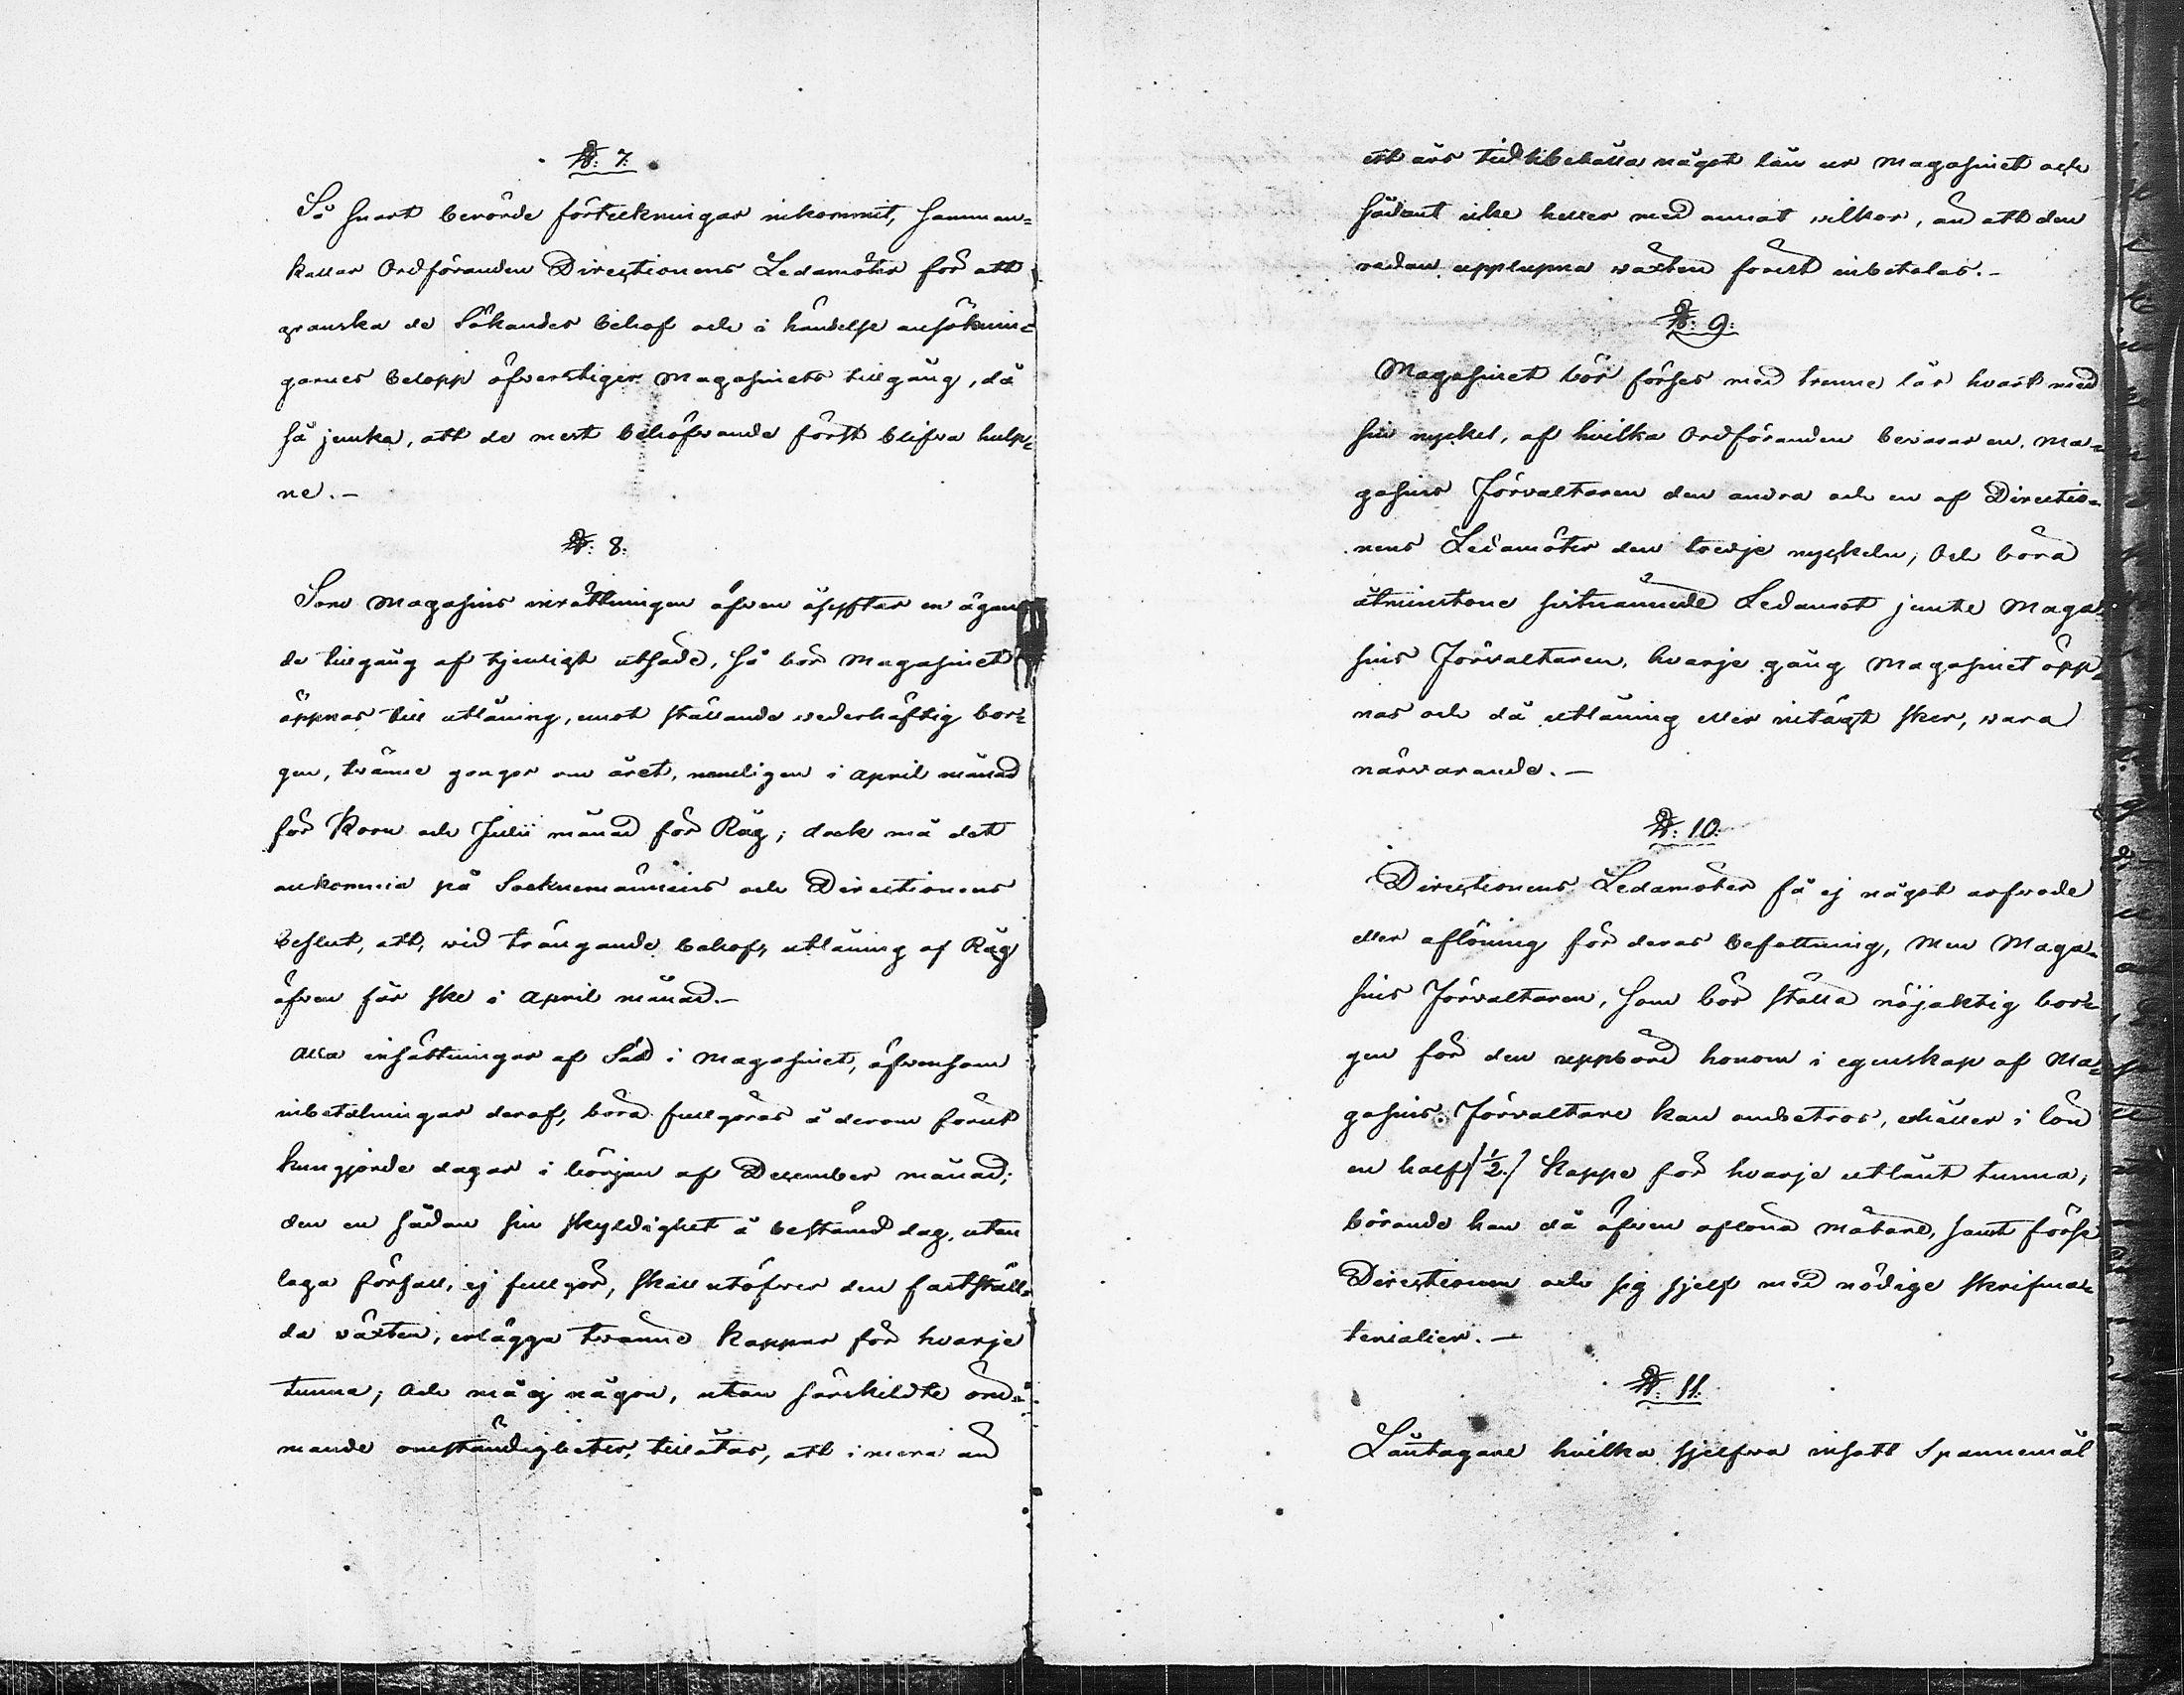 §: 7.
Så snart berörde förteckningar inkommit, samman=
kallar Ordföranden Directionens Ledamöter för att
granska de Sökandes behof och i händelse ansöknin=
garnes belopp öfverstiger Magasinets tillgång, då
så jemka, att de mest behöfvande först blifva hulp=
ne.—
§: 8.
Som Magasins inrättningen äfven åsyftar en ägan=
de tillgång af tjenligt utsäde, så bör Magasinet
öppnas till utlåning, emot ställande vederhäftig bor=
gen, tvänne gonger om året, nemligen i April månad
för Korn och Julii månad för Råg; dock må det
ankomma på Socknemännens och Directionens
beslut, att, vid trängande behof, utlåning af Råg
äfven får ske i April månad.—
Alla insättningar af Säd i Magasinet, äfvensom
inbetalningar deraf, böra fullgöras å derom förut
kungjorde dagar i början af December månad;
den en sådan sin skyldighet å bestämd dag, utan
laga förfall, ej fullgör, skall utöfver den fastställ=
da växten, erlägga tvänne Kappar för hvarje
tunna; Och må ej någon, utan särskildte öm=
mande omständigheter, tillåtas, att i mera än
ett års tid bibehålla något lån ur Magasinet och
sådant icke heller med annat vilkor, än att den
redan upplupna växten förest inbetalas.—
§: 9.
Magasinet bör förses med trenne lås hvart med
sin nyckel, af hvilka Ordföranden bevarar en, Ma=
gasins Förvaltaren den andra och en af Directio=
nens Ledamöter den tredje nyckeln; Och böra
åtminstone sistnämnde Ledamot jemte Maga=
sins Förvaltaren, hvarje gång Magasinet öpp=
nas och då utlåning eller intägt sker, vara
närvarande.—
§: 10.
Directionens Ledamöter få ej något arfvode
eller aflöning för deras befattning, Men Maga=
sins Förvaltaren, som bör ställa nöjaktig bor=
gen för den uppbörd honom i egenskap af Ma=
gasins Förvaltare kan anbetros, erhåller i lön
en half /½./ Kappe för hvarje utlånt tunna;
börande han då äfven aflöna mätare, samt förse
Directionen och sig sjelf med nödige skrifma=
terialier.—
§: 11.
Låntagare hvilka sjelfva insatt Spannemål